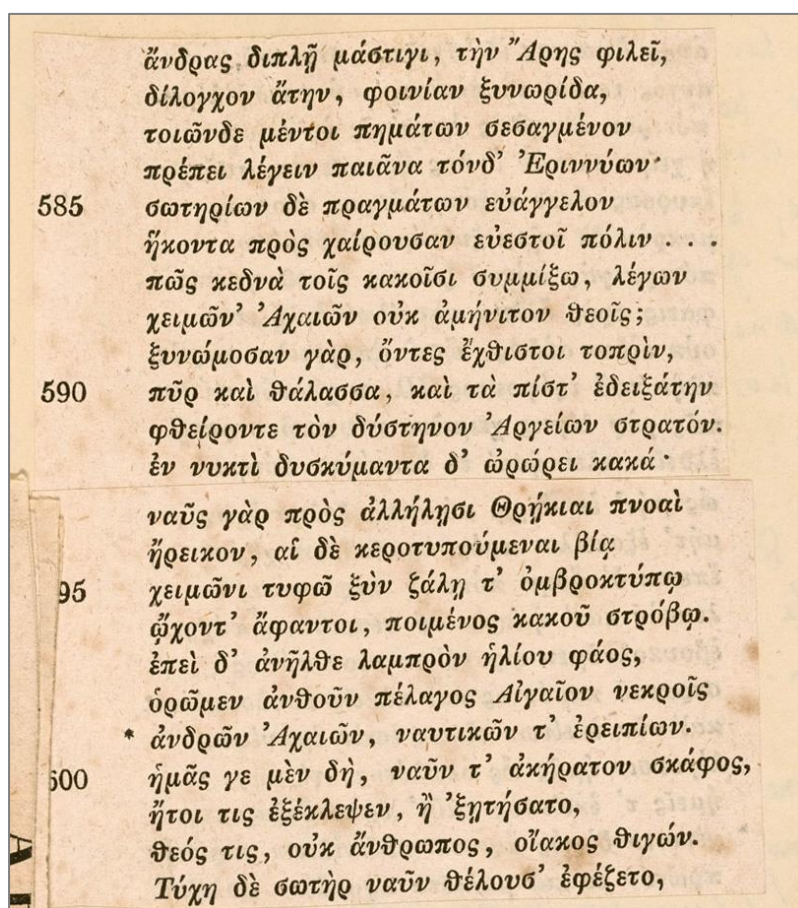 ἄνδρας διπλῇ μάστιγι, τὴν Ἄρης φιλεῖ,
δίλογχον ἄτην, φοινίαν ξυνωρίδα,
τοιῶνδε μέντοι πημάτων σεσαγμένον
πρέπει λέγειν παιᾶνα τόνδ’ Ἐριννύων·
585 σωτηρίων δὲ πραγμάτων εὐάγγελον
ἥκοντα πρὸς χαίρουσαν εὐεστοῖ πόλιν . . .
πῶς κεδνὰ τοῖς κακοῖσι συμμίξω, λέγων
χειμῶν’ Ἀχαιῶν οὐκ ἀμήνιτον θεοῖς;
ξυνώμοσαν γὰρ, ὄντες ἔχθιστοι τοπρὶν,
590 πῦρ καὶ θάλασσα, καὶ τὰ πίστ’ ἐδειξάτην
φθείροντε τὸν δύστηνον Ἀργείων στρατόν.
ἐν νυκτὶ δυσκύμαντα δ’ ὠρώρει κακά·
ναῦς γὰρ πρὸς ἀλλήλῃσι Θρῄκιαι πνοαὶ
ἤρεικον, αἱ δὲ κεροτυπούμεναι βίᾳ
95 χειμῶνι τυφῶ ξὺν ζάλῃ τ’ ὀμβροκτύπῳ
ᾤχοντ’ ἄφαντοι, ποιμένος κακοῦ στρόβῳ.
ἐπεὶ δ’ ἀνῆλθε λαμπρὸν ἡλίου φάος,
ὁρῶμεν ἀνθοῦν πέλαγος Αἰγαῖον νεκροῖς
* ἀνδρῶν Ἀχαιῶν, ναυτικῶν τ’ ἐρειπίων.
600 ἡμᾶς γε μὲν δὴ, ναῦν τ’ ἀκήρατον σκάφος,
ἤτοι τις ἐξέκλεψεν, ἢ ’ξῃτήσατο,
θεός τις, οὐκ ἄνθρωπος, οἴακος θιγών.
Τύχη δὲ σωτὴρ ναῦν θέλουσ’ ἐφέζετο,